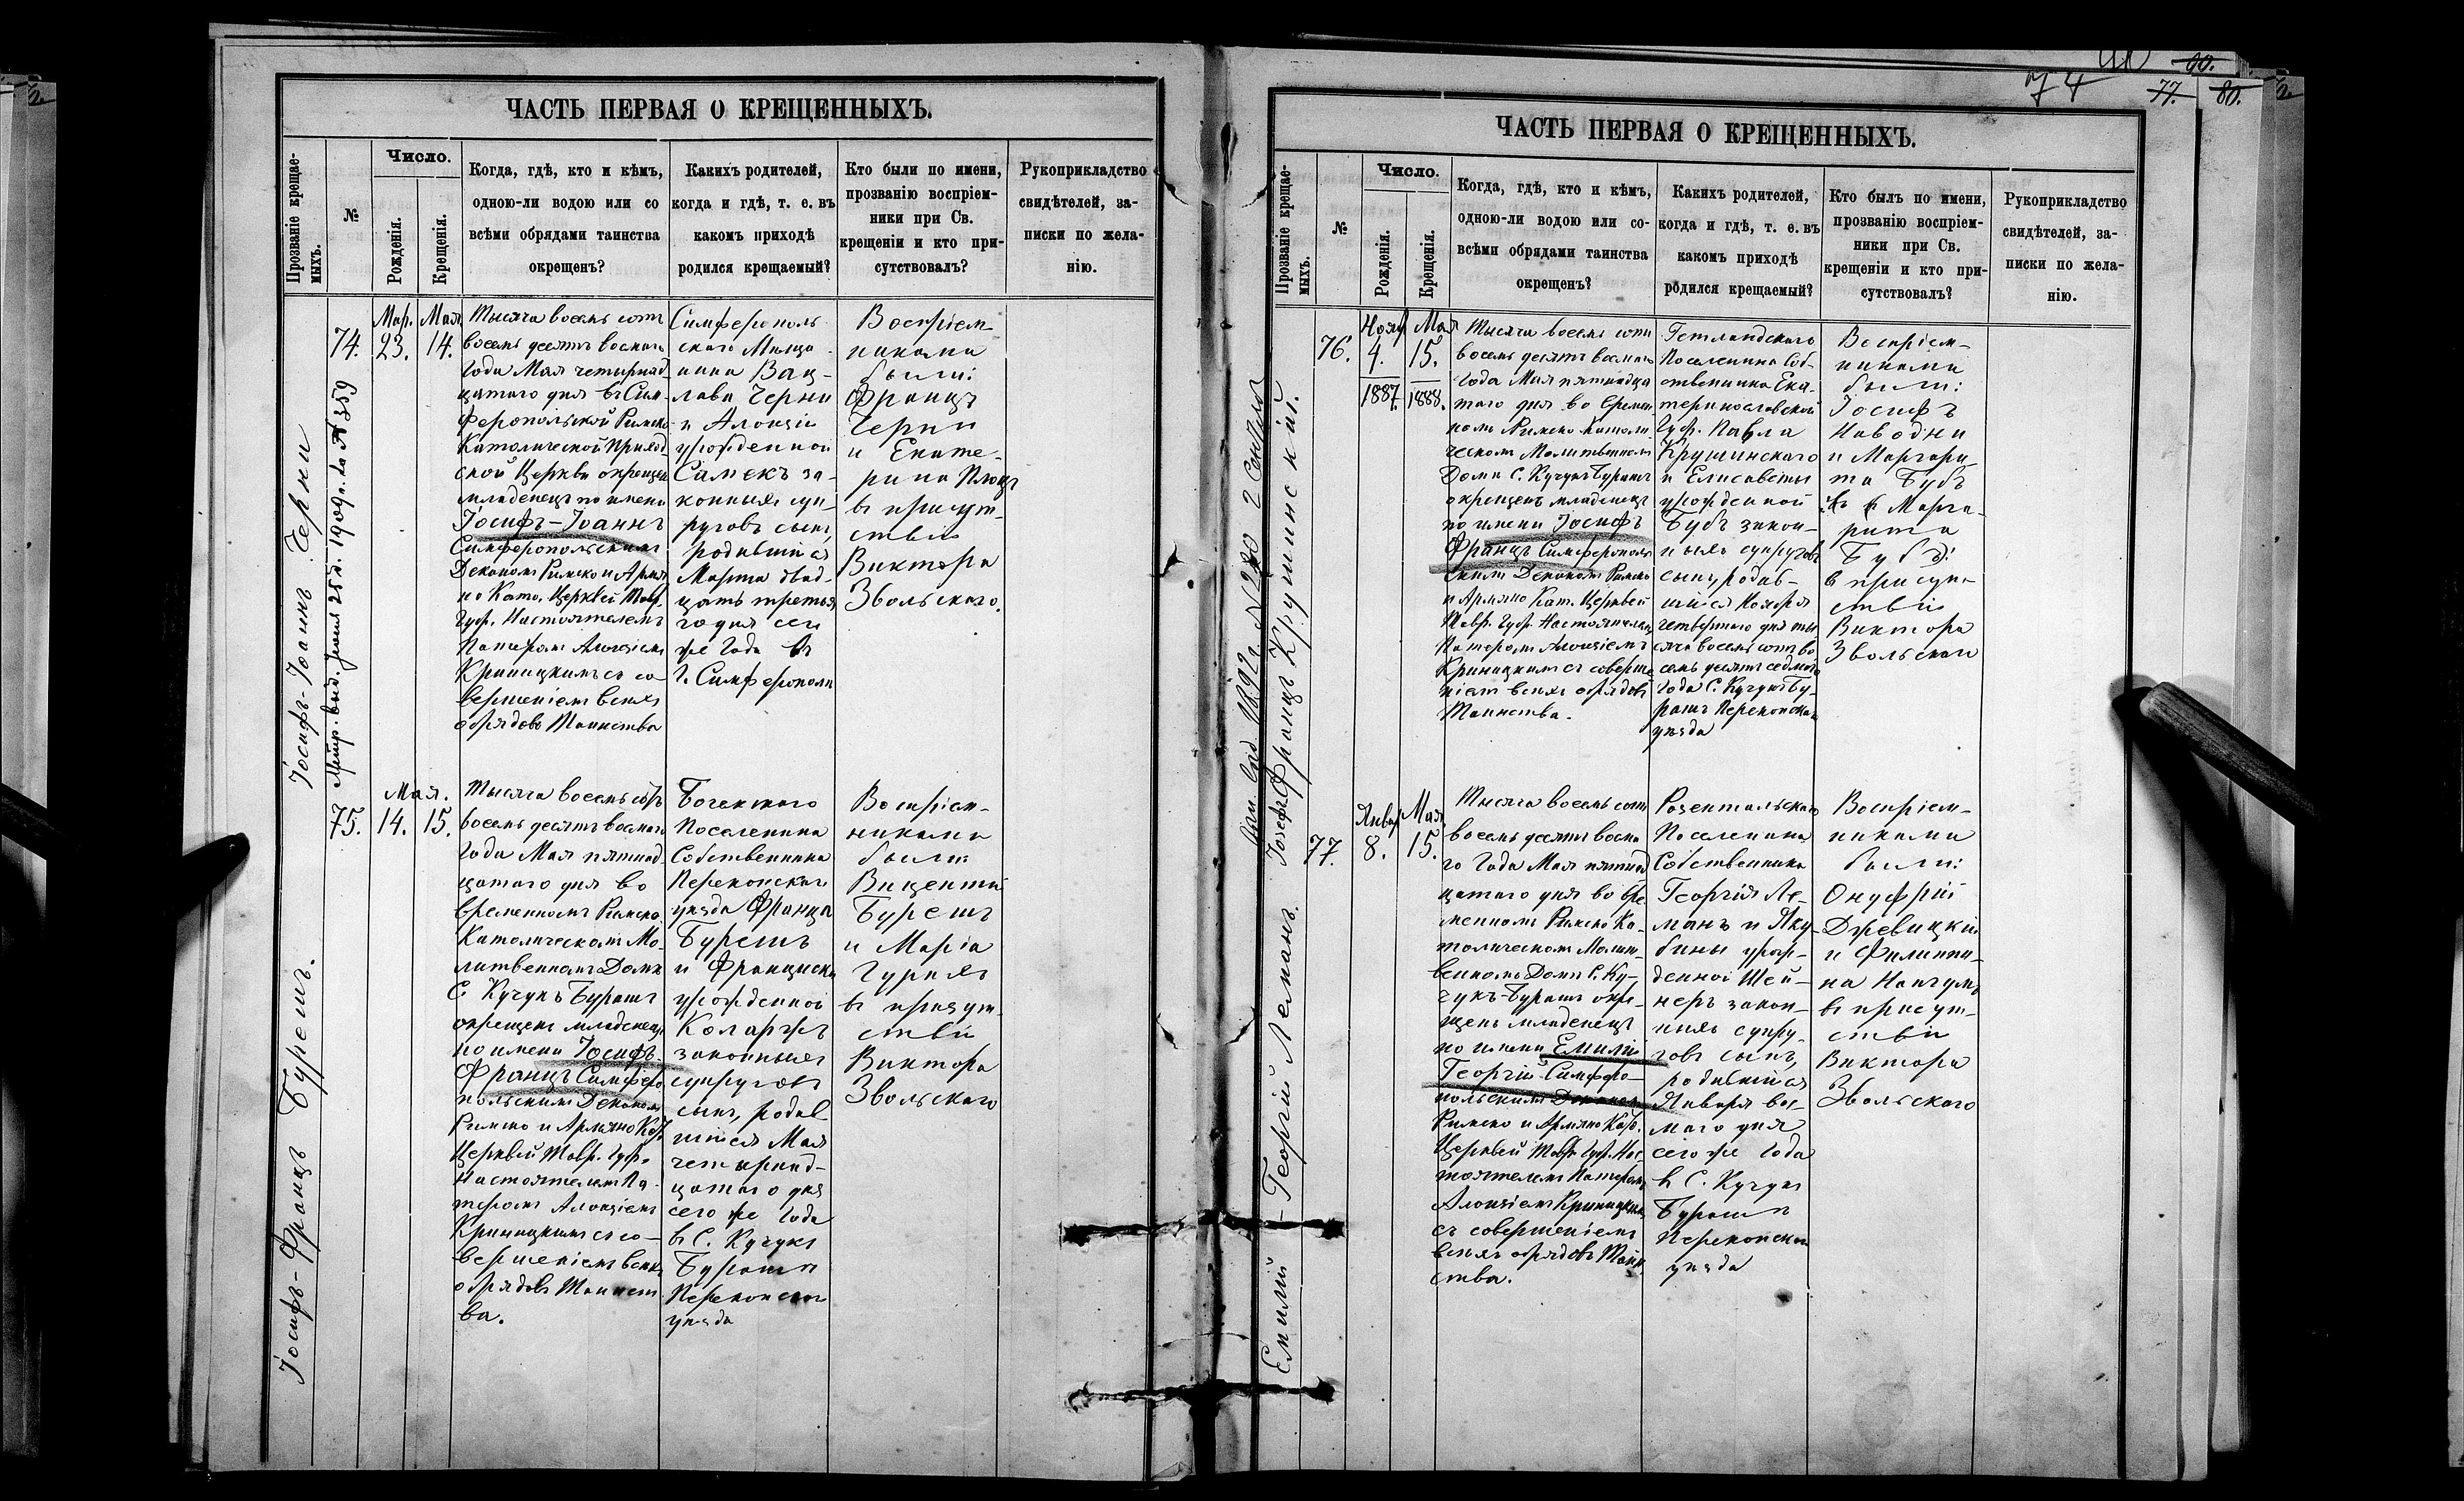 ЧАСТЬ ПЕРВАЯ О КРЕЩЕННЫХЪ.
Прозваніе крещае-
мыхъ.
№
Число.
Рожденія.
Крещенія.
Когда, гдѣ, кто и кѣмъ,
одною-ли водою или со
всѣми обрядами таинства
окрещенъ?
Какихъ родителей,
когда и гдѣ, т. е. въ
какомъ приходѣ
родился крещаемый?
Кто были по имени,
прозванію воспріем-
ники при Св.
крещеніи и кто при-
сутствовалъ?
Рукоприкладство
свидѣтелей, за-
писки по жела-
нію.
Іосифъ-Іоаннъ Черни
74.
Мар.
23.
Мая
14.
Тысяча восемь сотъ
восемь десятъ восмаго
Года Мая четырнад
цатаго дня въ Сим
феропольской Римско
Католической Приход
ской Церкви окрещен
младенецъ по имени
Іосифъ-Іоаннъ
Симферопольскимъ
Деканомъ Римско и Армя
но Като. Церквей Тавр.
Губ. Настоятелемъ
Патеромъ Алоизіемъ
Криницкимъ съ со
вершеніемъ всѣхъ
обрядовъ Таинства
Симферополь
скаго Мѣща
нина Вац-
лава Черни
и Алоизіи
урожденной
Самекъ за-
конныхъ суп-
руговъ сынъ,
родившійся
Марта двад-
цать третья
го дня сего
же Года въ
г. Симферополѣ
Воспріем-
никами
были:
Францъ
Черни
и Екате-
рина Плоцъ
въ присут-
ствіи
Виктора
Звольскаго.
Іосифъ-Францъ Бурешъ.
75.
Мая.
14.
15.
Тысяча восемь сотъ
восемь десятъ восмаго
Года Мая пятнад
цатаго дня во
временномъ Римско
Католическомъ Мо-
литвенномъ Домѣ
С Кучукъ Бурашъ
окрещенъ младенецъ
по имени Іосифъ
Францъ Симферо
польскимъ Деканом
Римско и Армяно Кат.
Церквей Тавр. Губ.
Настоятелемъ Па-
теромъ Алоизіемъ
Криницкимъ съ со-
вершеніемъ всѣхъ
обрядовъ Таинст
ва.
Поселенина
Собственника
Перекопскаго
уѣзда Франца
Бурешъ
и Франциски
урожденной
Коларжъ
законныхъ
супруговъ
сынъ, родив
шійся Мая
четырнад-
цатаго дня
сего же Года
въ С. Кучукъ
Бурашѣ
Перекопскаго
уѣзда
Воспріем-
никами
были:
Вицентій
Бурешъ
и Марія
въ присут-
ствіи
Виктора
Звольскаго
74
77.
80.
ЧАСТЬ ПЕРВАЯ О КРЕЩЕННЫХЪ.
Прозваніе крещае-
мыхъ.
№
Число.
Рожденія.
Крещенія.
Когда, гдѣ, кто и кѣмъ,
одною-ли водою или со-
всѣми обрядами таинства
окрещенъ?
Какихъ родителей,
когда и гдѣ, т. е. въ
какомъ приходѣ
родился крещаемый?
Кто былъ по имени,
прозванію воспріем-
ники при Св.
крещеніи и кто при-
сутствовалъ?
Рукоприкладство
свидѣтелей, за-
писки по жела-
нію.
Францъ Крушинскій.
76.
Нояб
4.
1887.
Мая
15.
1888.
Тысяча восемь сотъ
восемь десятъ восмаго
Года Мая пятнадца
таго дня во Времен
номъ Римско Католи
ческомъ Молитвенномъ
Домѣ С. Кучукъ Бурашъ
окрещенъ младенецъ
по имени Іосифъ
Францъ Симферополь
скимъ Деканомъ Римско
и Армяно Кат. Церквей
Тавр. Губ. Настоятелемъ
Патеромъ Алоизіемъ
Криницкимъ съ соверше
ніемъ всѣхъ обрядовъ
Таинства.
Поселенина Соб-
ственника Ека-
теринославской
Губ. Павла
Крушинскаго
и Елисаветы
урожденной
Бубъ закон-
ныхъ супруговъ
сынъ, родив-
шійся Ноября
четвертаго дня ты
сяча восемь сотъ во
семь десятъ седмаго
Года С. Кучукъ Бу-
рашъ Перекопскаго
уѣзда
Воспріем-
никами
были:
Іосифъ
Наводни
и Маргари-
та Бубъ
Марга-
рита
Бубъ:
въ присут-
ствіи
Виктора
Звольскаго
Емилій-Георгій Леманъ.
77.
Январ
8.
Мая
15.
Тысяча восемь сотъ
восемь десятъ восма
го Года Мая пятнад
цатаго дня во вре
менномъ Римско Ка-
толическомъ Молит-
венномъ Домѣ С. Ку-
чукъ-Бурашъ окре-
щенъ младенецъ
по имени Емилій
Георгій Симферо-
польскимъ Деканом
Римско и Армяно Като.
Церквей Тавр. Губ. Нас
тоятелемъ Патеромъ
Алоизіемъ Криницким
съ совершеніемъ
всѣхъ обрядовъ Таин
ства.
Розентальскаго
Поселенина
Собственника
Георгія Ле-
манъ и Яку-
бины урож-
денной Шей-
неръ закон-
ныхъ супру-
говъ сынъ,
родившійся
Января вос-
маго дня
сего же Года
въ С. Кучукъ
Бурашѣ
Перекопскаго
уѣзда
Воспріем-
никами
были:
Онуфрій
Држевицкій
и Филипи-
на
въ присут-
ствіи
Виктора
Звольскаго